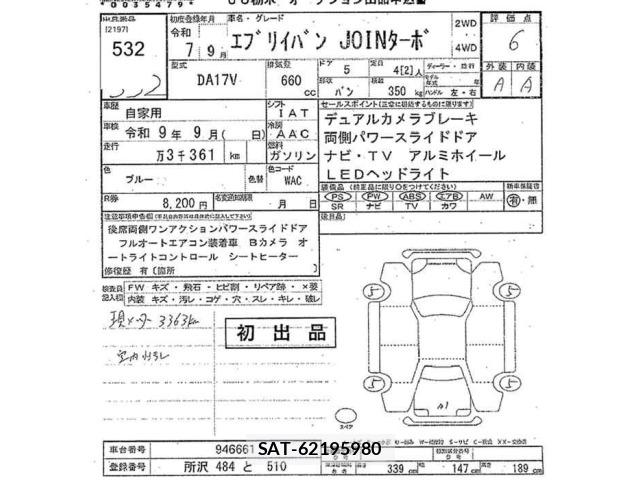 *0035479*
出品番号 初度登録年月 車名・グレード 2WD 評価点
[2197]
532 令和 7年 9月 エブリイバン JOINターボ 4WD 6
型式 DA17V 排気量 660 cc ドア 5 定員 4[2]人 ディーラー・並行 外装 内装
形状 バン 積載 350 kg ハンドル 左・右 A A
車歴 自家用 シフト IAT セールスポイント(正常に作動するものに限ります)
車検 令和 9年 9月( 日) 冷房 AAC デュアルカメラブレーキ
両側パワースライドドア
走行 万3千361 km 燃料 ガソリン ナビ・TV アルミホイール
色 ブルー 色替 色コード WAC LEDヘッドライト
装備品(純正品に限り○をつけてください) 新車保証書
R券 8,200円 名変期限 月 日 PS PW ABS エアB AW 有・無
SR ナビ TV カワ
注意事項申告欄
後席両側ワンアクションパワースライドドア
フルオートエアコン装着車 Bカメラ オ
ートライトコントロール シートヒーター
修復歴 有(箇所
検査員記入欄 FW キズ・飛石・ヒビ割・リペア跡・×要
内装 キズ・汚レ・コゲ・穴・スレ・キレ・破レ
現メーター 3363km
初出品
室内汚レ
5 5
5 5
A1
スペア
車台番号 946661 SAT-62195980
登録番号 所沢 484 と 510 長さ 339 cm 幅 147 cm 高さ 189 cm